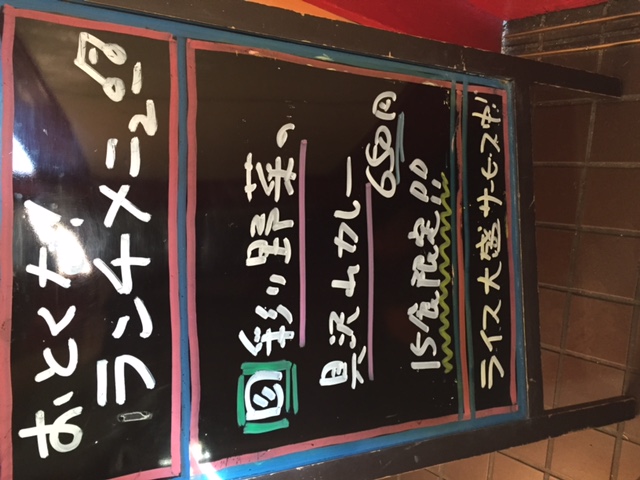 おとくな!
ランチメニュー
日 彩り野菜の
具沢山カレー
650円
15食限定!!
ライス大盛サービス中!